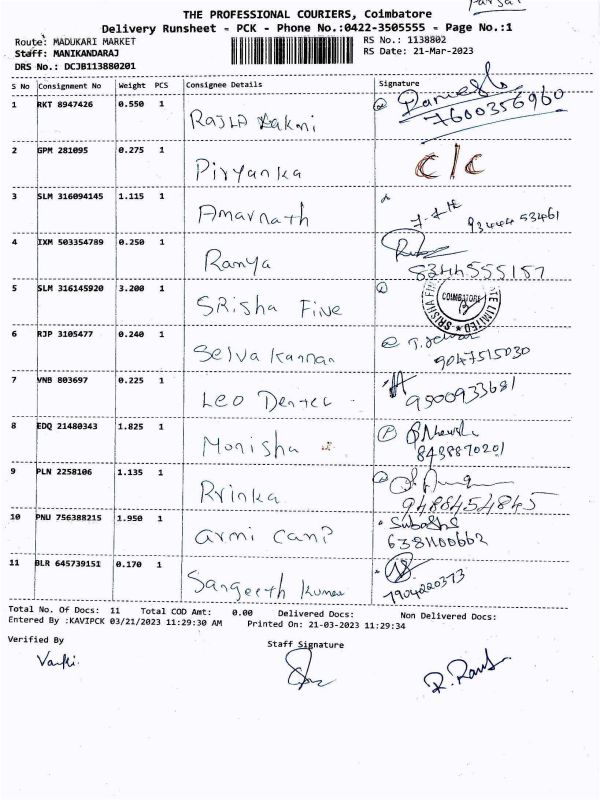 THE PROFESSIONAL COURIERS, Coimbatore
Delivery Runsheet - PCK - Phone No.:0422-3505555 - Page No.:1
Route: MADUKARI MARKET
RS No.: 1138802
Staff: MANIKANDARAJ
RS Date: 21-Mar-2023
DRS No.: DCJB113880201
S No Consignment No Weight PCS Consignee Details Signature
1 RKT 8947426 0.550 1
7600356960
2 GPM 281095 0.275 1 Piryanka C/C
3 SLM 316094145 1.115 1 Amarnath
93444 53461
4 IXM 503354789 0.250 1 Ranya
8344555157
5 SLM 316145920 3.200 1 SRisha Five
COIMBATORE
6 RJP 3105477 0.240 1 Selva Kannan
9047515030
7 VNB 803697 0.225 1 Leo
9500933681
8 EDQ 21480343 1.825 1 Monisha
9 PLN 2258106 1.135 1 Rrinka
9486454845
10 PNU 756388215 1.950 1
6381100662
11 BLR 645739151 0.170 1 Sangeeth Kumar
7904220373
Total No. Of Docs: 11 Total COD Amt: 0.00 Delivered Docs: Non Delivered Docs:
Entered By :KAVIPCK 03/21/2023 11:29:30 AM Printed On: 21-03-2023 11:29:34
Verified By
Staff Signature